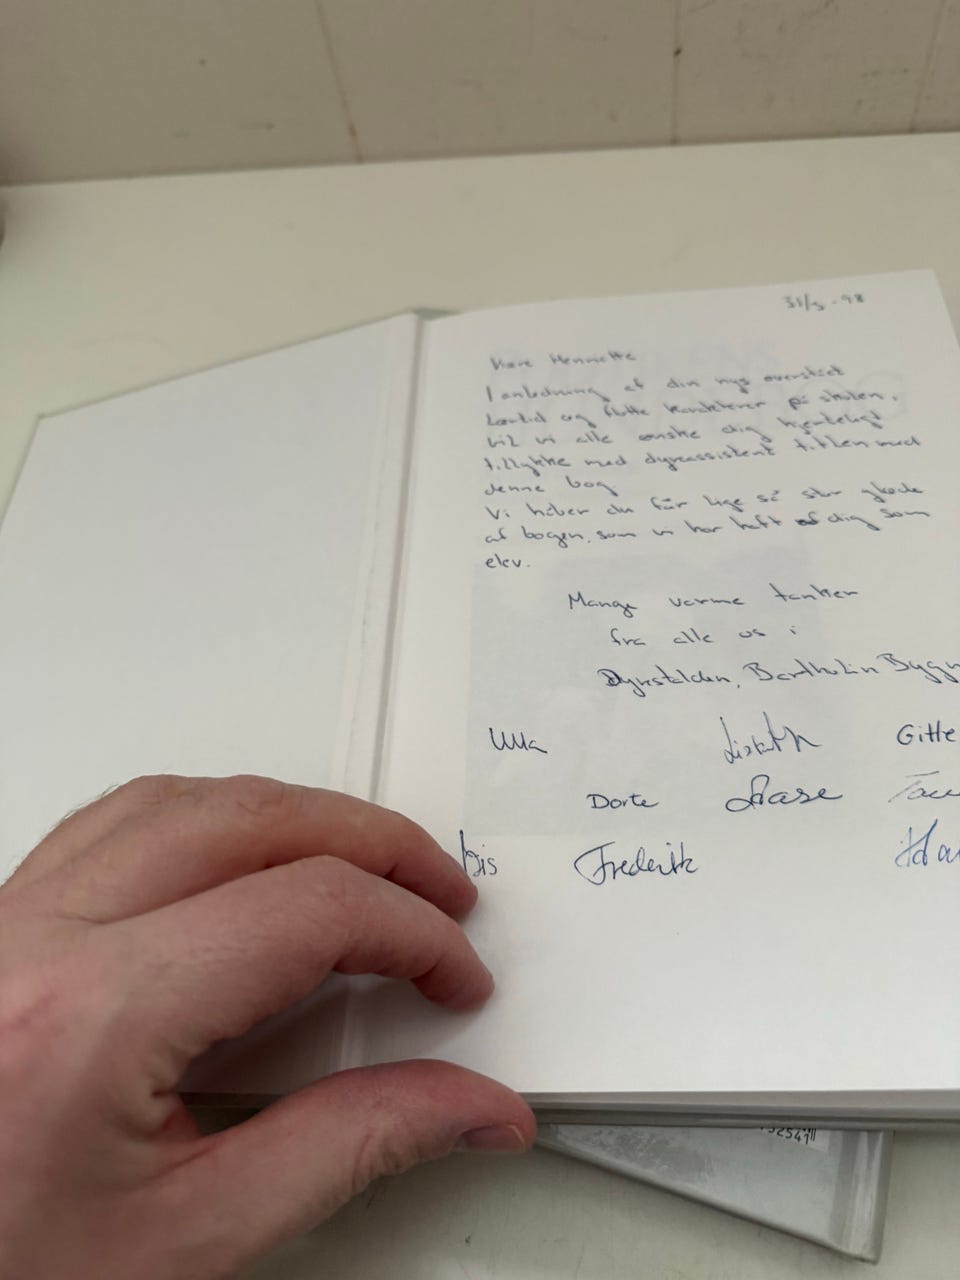 31/5-98
Kære Henriette
I anledning af din nys overstået
læretid og flotte karakterer på skolen,
vil vi alle ønske dig hjerteligt
tillykke med dyreassistent titlen med
denne bog
Vi håber du får lige så stor glæde
af bogen, som vi har haft af dig som
elev.
Mange varme tanker
fra alle os i
Dyrestalden, Bartholin Bygn
Ulla Lisbeth Gitte
Dorte Aase
Lis Frederik